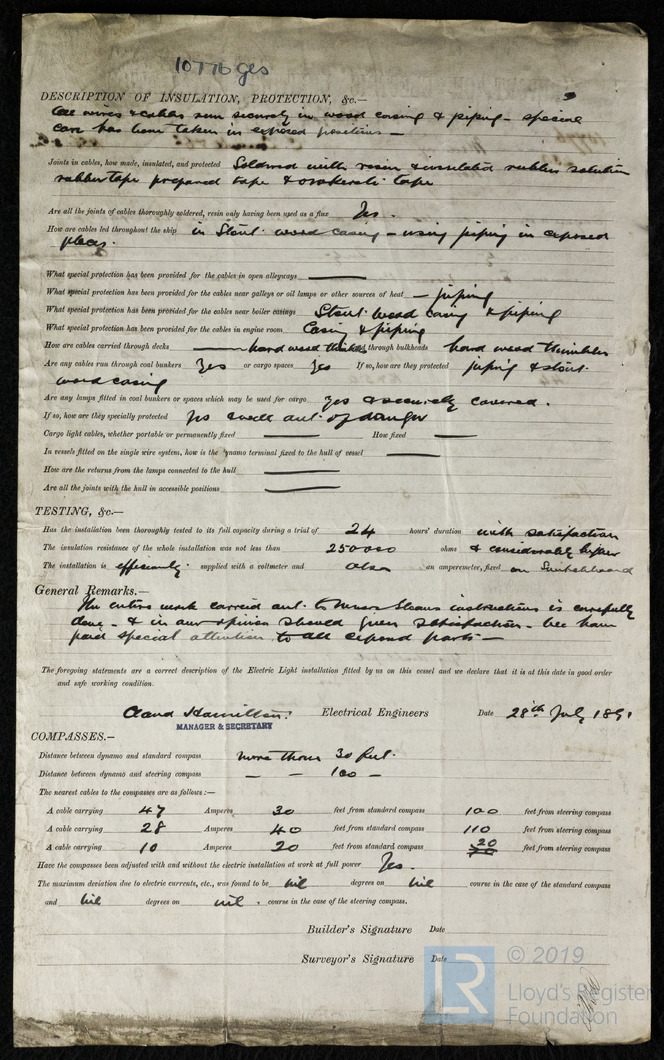 10776 ges
DESCRIPTION OF INSULATION, PROTECTION, &c.—
All wires & cables run securely in wood casing & piping - special
care has been taken in exposed positions —
Joints in cables, how made, insulated, and protected Soldered with resin & insulated rubber solution
rubber tape prepared tape & tape
Are all the joints of cables thoroughly soldered, resin only having been used as a flux Yes.
How are cables led throughout the ship in Stout wood casing - using piping in exposed
places.
What special protection has been provided for the cables in open alleyways —
What special protection has been provided for the cables near galleys or oil lamps or other sources of heat — piping
What special protection has been provided for the cables near boiler casings Stout wood casing & piping
What special protection has been provided for the cables in engine room Casing & piping
How are cables carried through decks — hard wood thimbles through bulkheads hard wood thimbles
Are any cables run through coal bunkers Yes or cargo spaces Yes If so, how are they protected piping & stout
wood casing
Are any lamps fitted in coal bunkers or spaces which may be used for cargo Yes & securely covered.
If so, how are they specially protected Yes & well out of danger
Cargo light cables, whether portable or permanently fixed — How fixed —
In vessels fitted on the single wire system, how is the dynamo terminal fixed to the hull of vessel —
How are the returns from the lamps connected to the hull —
Are all the joints with the hull in accessible positions —
TESTING, &c.—
Has the installation been thoroughly tested to its full capacity during a trial of 24 hours' duration with satisfaction
The insulation resistance of the whole installation was not less than 250000 ohms & considerably higher
The installation is efficiently supplied with a voltmeter and also an amperemeter, fixed on Switchboard
General Remarks.—
The entire work carried out to Messrs instructions is carefully
done - & in our opinion should give satisfaction. We have
paid special attention to all exposed parts —
The foregoing statements are a correct description of the Electric Light installation fitted by us on this vessel and we declare that it is at this date in good order
and safe working condition.
Claud Hamilton Electrical Engineers Date 28th July 1891
MANAGER & SECRETARY
COMPASSES.—
Distance between dynamo and standard compass more than 30 feet.
Distance between dynamo and steering compass — — 100 —
The nearest cables to the compasses are as follows:—
A cable carrying 47 Amperes 30 feet from standard compass 100 feet from steering compass
A cable carrying 28 Amperes 40 feet from standard compass 110 feet from steering compass
A cable carrying 10 Amperes 20 feet from standard compass 20 feet from steering compass
Have the compasses been adjusted with and without the electric installation at work at full power Yes.
The maximum deviation due to electric currents, etc., was found to be nil degrees on nil course in the case of the standard compass
and nil degrees on nil. course in the case of the steering compass.
Builder's Signature Date
Surveyor's Signature Date
LR © 2019
Lloyd's Register
Foundation